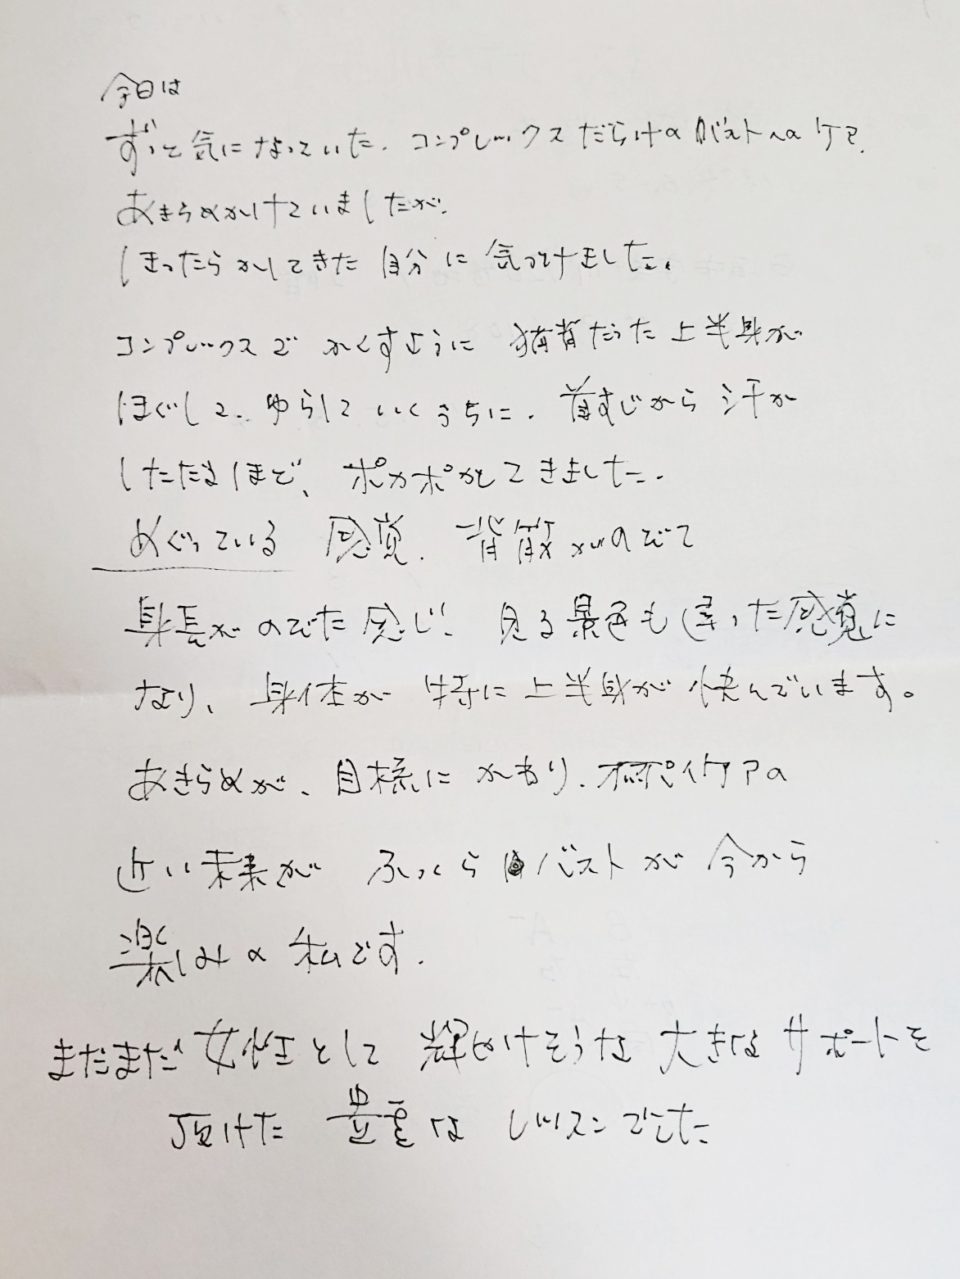 今日は
ずっと気になっていた、コンプレックスだらけのバストへのケア、
あきらめかけていましたが、
ほったらかしてきた自分に気づけました。
コンプレックスでかくすように猫背だった上半身が
ほぐして、ゆらしていくうちに、首すじから汗が
したたるほど、ポカポカしてきました。
めぐっている感覚、背筋がのびて
身長がのびた感じ、見る景色も違った感覚に
なり、身体が特に上半身が快んでいます。
あきらめが、目標にかわり、ケアの
近い未来がふっくらバストが今から
楽しみの私です。
まだまだ女性として輝やけそうな大きなサポートを
頂けた貴重なレッスンでした